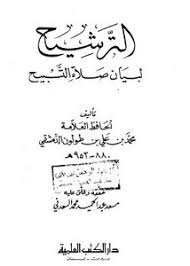 الترشيح
لبيان صلاة التسبيح
تأليف
الحافظ العلامة
محمد بن علي بن طولون الدمشقي
٨٨٠ - ٩٥٣ هـ
حققه وعلق عليه
مسعد عبد الحميد محمد السعدني
دار الكتب العلمية
بيروت - لبنان